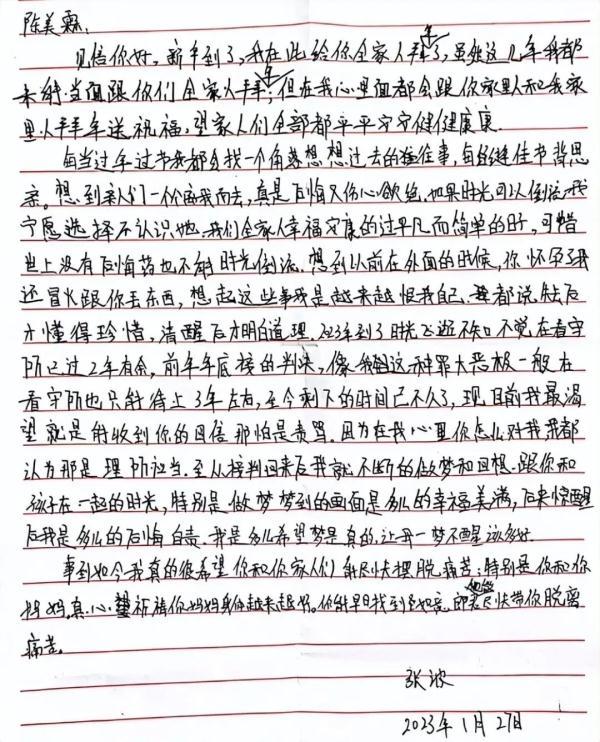 陈美霖:
见信你好,新年到了,我在此给你全家人拜年了,虽然这几年我都
未能当面跟你们全家人拜年,但在我心里面都会跟你家里人和我家
里人拜年送祝福,望家人们全部都平平安安健健康康.
每当过年过节我都会找一个角落想想过去的往事,每逢佳节背思
亲。想到亲人们一个个离我而去,真是后悔又伤心欲绝,如果时光可以倒流我
宁愿选择不认识她.我们全家人幸福安康的过平凡而简单的日子,可惜
世上没有后悔药也不能时光倒流.想到以前在外面的时候,你怀孕了我
还冒火跟你丢东西,想起这些事我是越来越恨我自己.我都说失后
才懂得珍惜,清醒后才明白道理.2023年到了时光飞逝不知不觉在看守
所已过2年有余,前年年底接的判决,像我这种罪大恶极一般在
看守所也只能待上3年左右,至今剩下的时间已不久了,现目前我最渴
望就是能收到你的回信那怕是责骂.因为在我心里你怎么对我我都
认为那是理所应当.至从接判回来后我就不断的做梦和回想.跟你和
孩子在一起的时光,特别是做梦梦到的画面是多么的幸福美满,后来惊醒
后我是多么的后悔自责.我是多么希望梦是真的,让我一梦不醒该多好
事到如今我真的很希望你和你家人们能尽快摆脱痛苦.特别是你和你
妈妈.真心祈祷你妈妈身体越来越好.你能早日找到如意郎君尽快带你脱离
痛苦。
张波
2023年1月27日